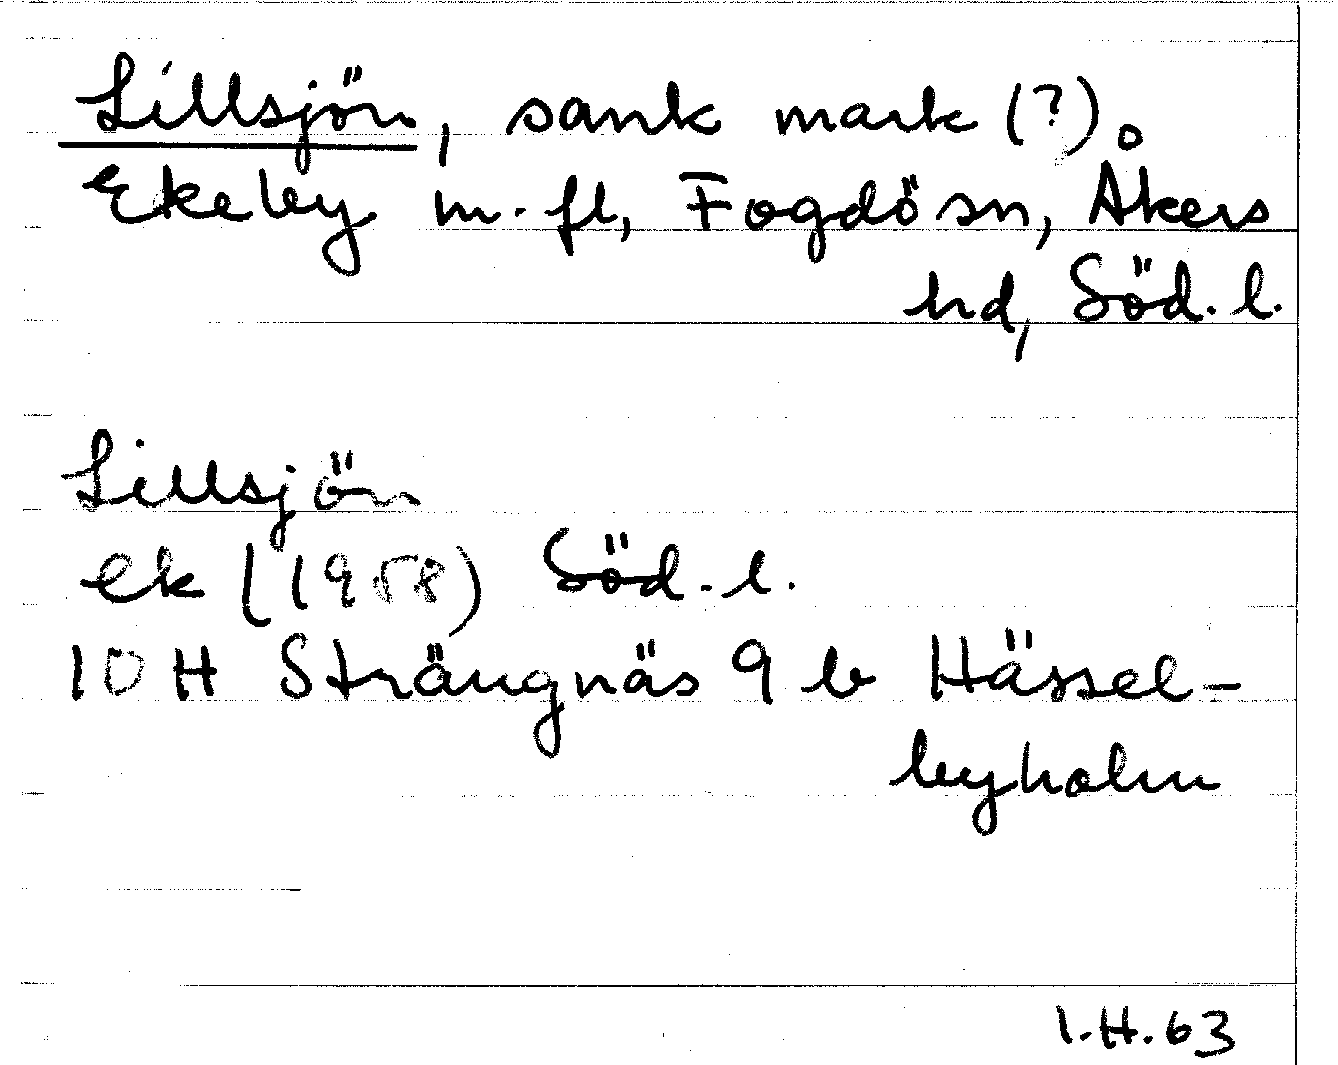 Lillsjön, sank mark (?).
Ekeby m.fl, Fogdö sn, Åkers
hd, Söd. l.
Lillsjön
ek (1958) Söd. l.
10 H Strängnäs 9 b Hässel-
byholm
I.H.63